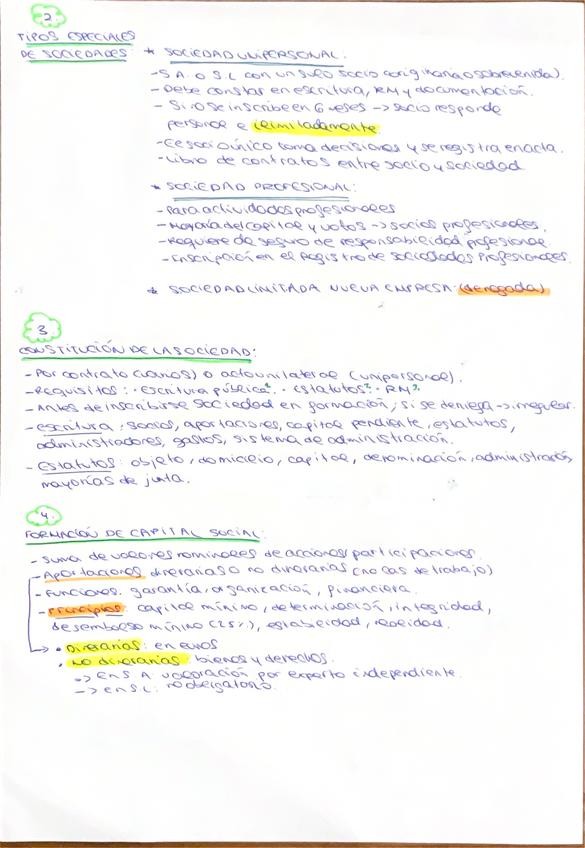 2.
TIPOS ESPECIALES
DE SOCIEDADES
* SOCIEDAD UNIPERSONAL:
- S.A. o S.L con un solo socio (originaria o sobrevenida).
- Debe constar en escritura, RM y documentación.
- Si no se inscribe en 6 meses -> socio responde
personal e ilimitadamente.
- El socio único toma decisiones y se registra en acta.
- Libro de contratos entre socio y sociedad
* SOCIEDAD PROFESIONAL:
- Para actividades profesionales
- Mayoría del capital y votos -> socios profesionales.
- Requiere de seguro de responsabilidad profesional
- Inscripción en el Registro de Sociedades Profesionales.
* SOCIEDAD LIMITADA NUEVA EMPRESA: (derogada)
3
CONSTITUCIÓN DE LA SOCIEDAD:
- Por contrato (varios) o acto unilateral (unipersonal).
- Requisitos: · Escritura pública · Estatutos · RM
- Antes de inscribirse sociedad en formación, si se deniega -> irregular.
- Escritura: socios, aportaciones, capital pendiente, estatutos,
administradores, gastos, sistema de administración.
- Estatutos: objeto, domicilio, capital, denominación, administración,
mayorías de junta.
4.
FORMACIÓN DE CAPITAL SOCIAL:
- Suma de valores nominales de acciones/participaciones.
- Aportaciones dinerarias o no dinerarias (no cas de trabajo)
- Funciones: garantía, organización, financiera.
- Principios: capital mínimo, determinación, integridad,
desembolso mínimo (25%), estabilidad, realidad.
· Dinerarias: en euros
· No dinerarias: bienes y derechos.
-> En S.A valoración por experto independiente.
-> en S.L: no obligatorio.